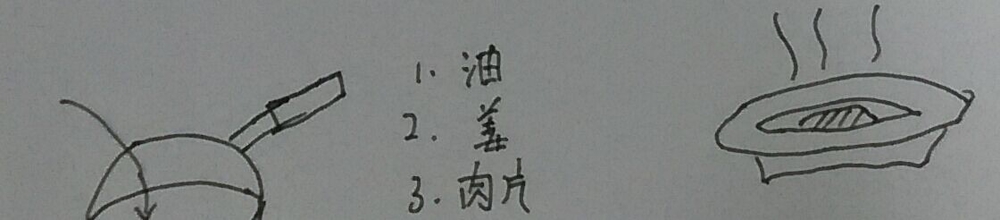 1. 油
2. 姜
3. 肉片